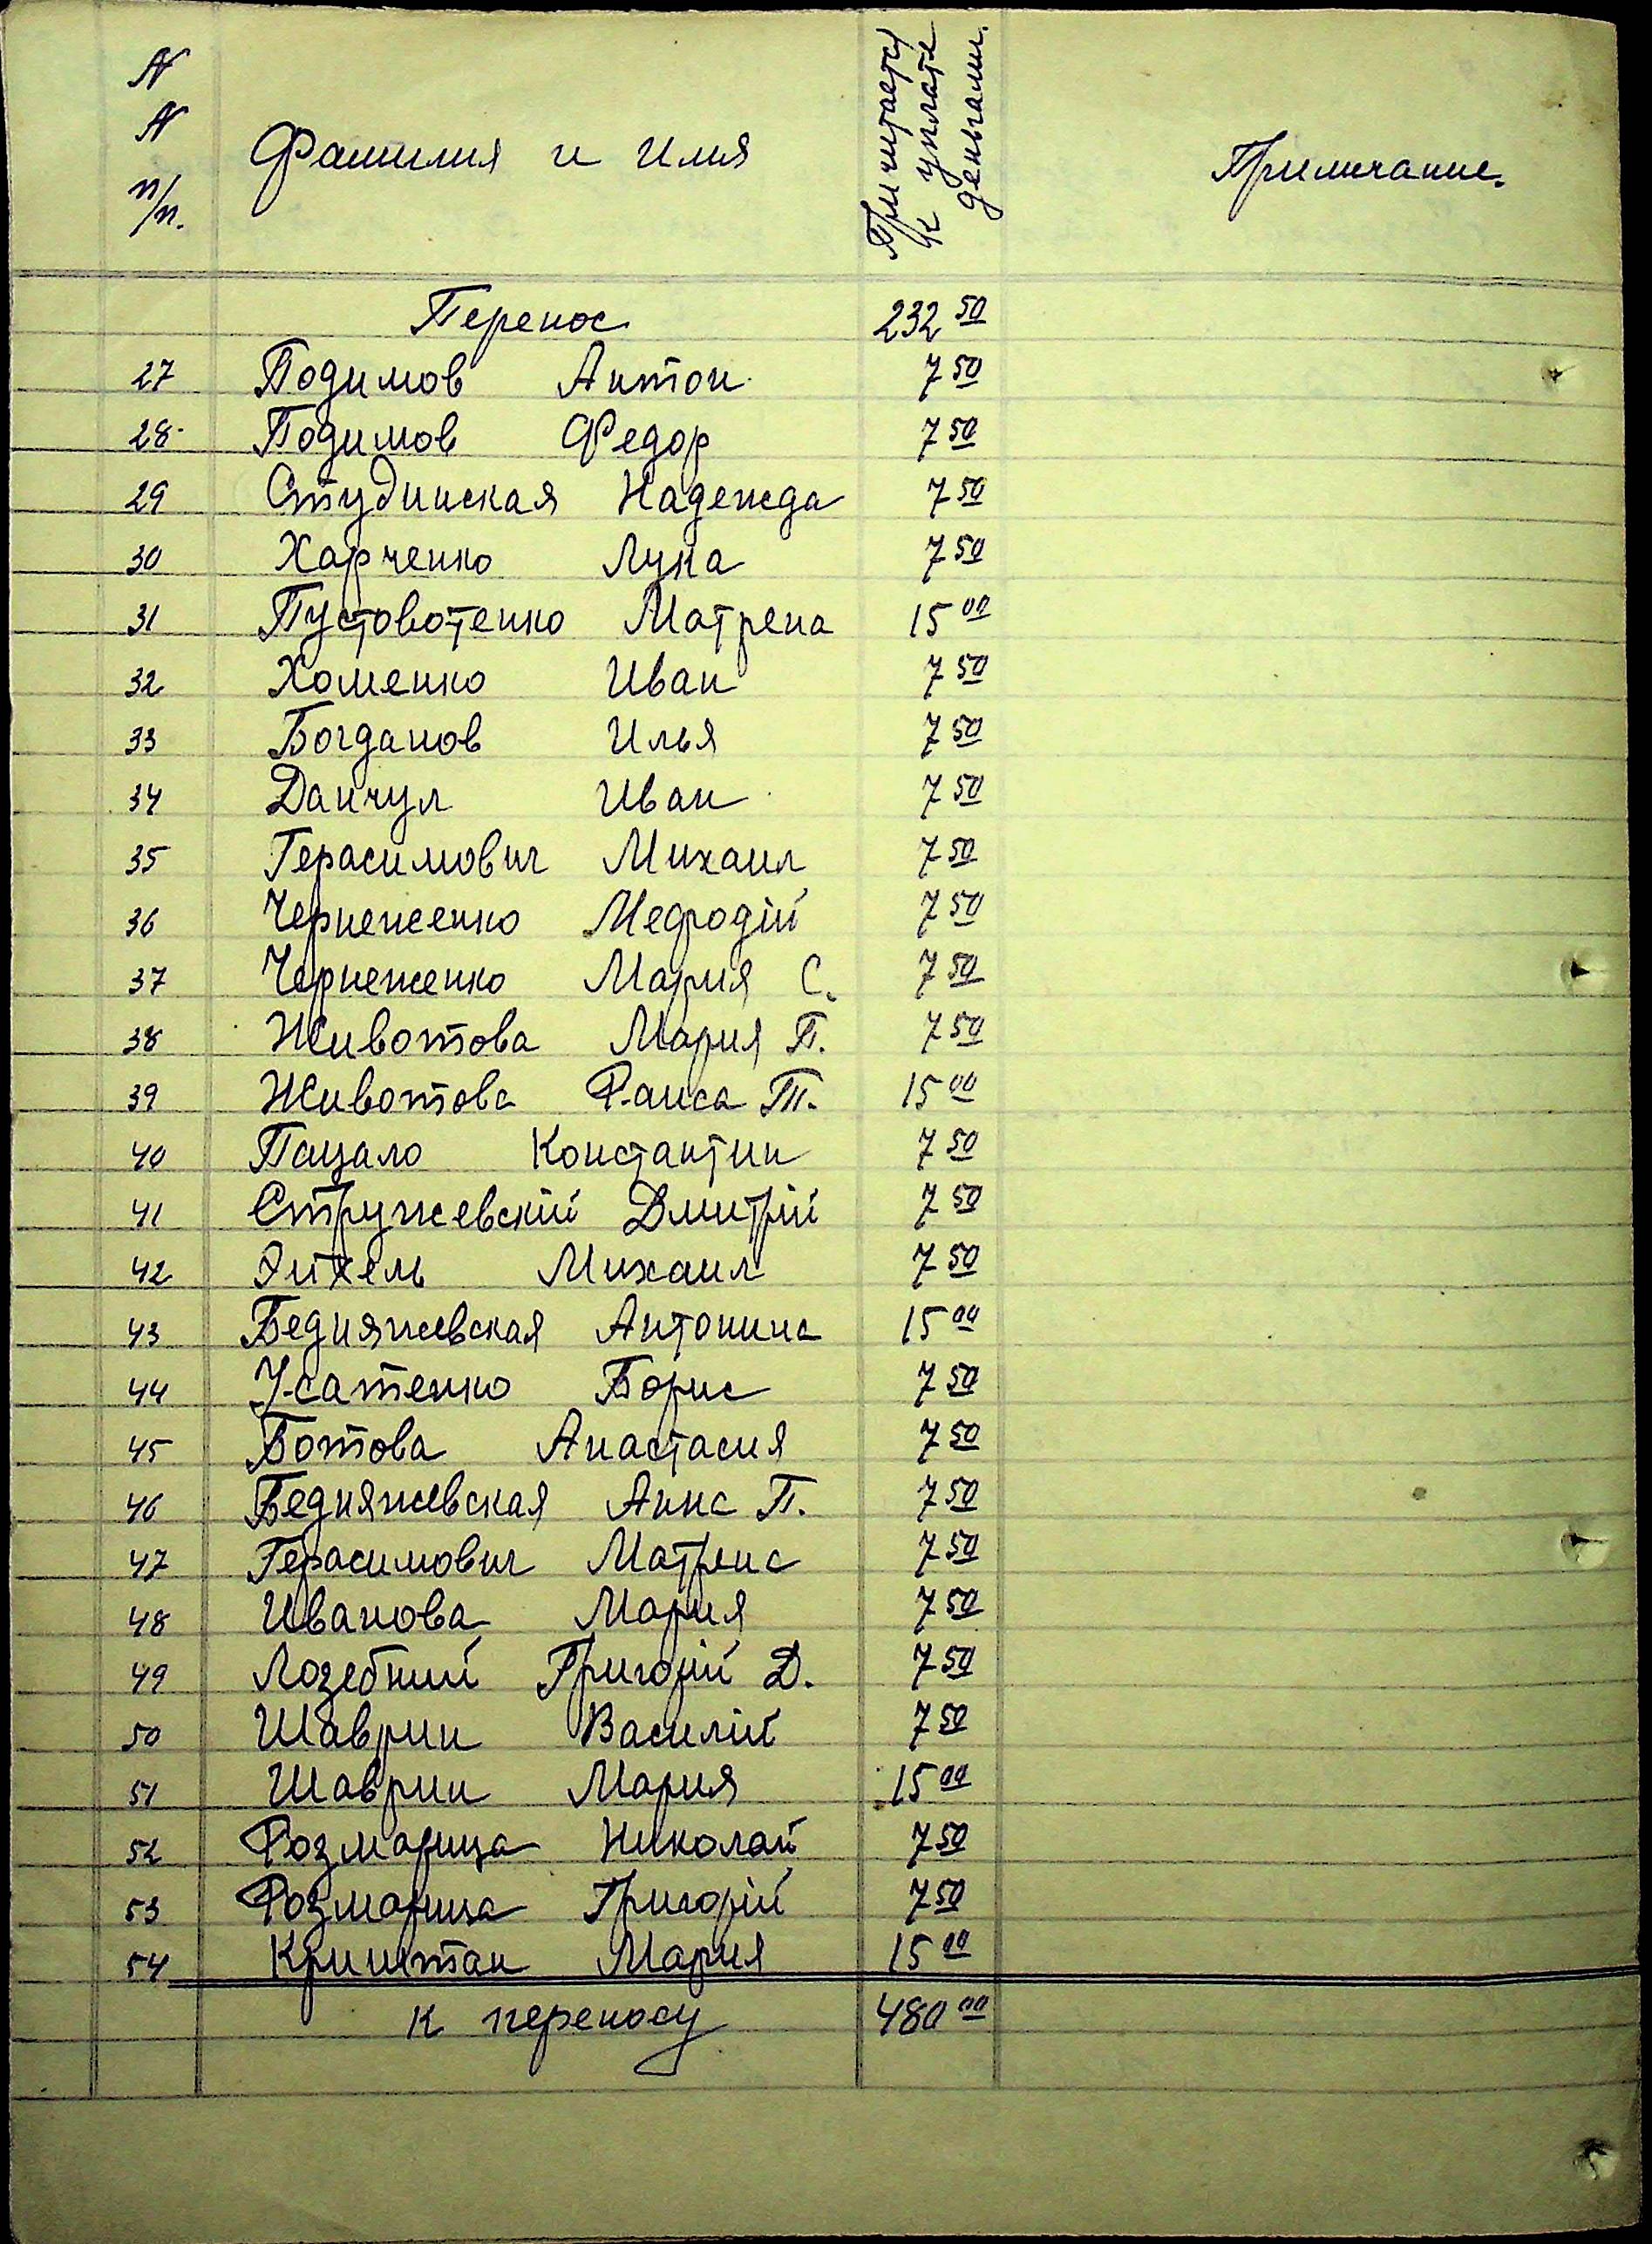 N N п/п. Фамилия и имя Причитается к уплате деньгами. Примичание.
Перенос 232 50
27 Подимов Антон 7 50
28 Подимов Федор 7 50
29 Студинская Надежда 7 50
30 Харченко Лука 7 50
31 Пустовотенко Матрена 15 00
32 Хоменко Иван 7 50
33 Богданов Илья 7 50
34 Данчул Иван 7 50
35 Герасимович Михаил 7 50
36 Чернеженко Мефодій 7 50
37 Чернеженко Мария С. 7 50
38 Животова Мария П. 7 50
39 Животова Раиса Т. 15 00
40 Пацало Константин 7 50
41 Стружевскій Дмитрій 7 50
42 Эйхель Михаил 7 50
43 Бедняжевская Антонина 15 00
44 Усатенко Борис 7 50
45 Ботова Анастасия 7 50
46 Бедняжевская Анна П. 7 50
47 Герасимович Матрена 7 50
48 Иванова Мария 7 50
49 Лозебний Григорій Д. 7 50
50 Шаврин Василій 7 50
51 Шаврин Мария 15 00
52 Розмарица Николай 7 50
53 Розмарица Григорій 7 50
54 Криштан Мария 15 00
к переносу 480 00